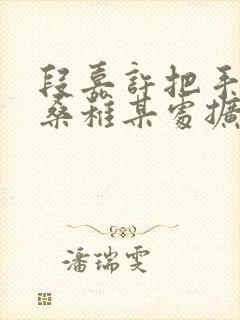 段嘉許把手
桑稚某處擴
潘瑞雯